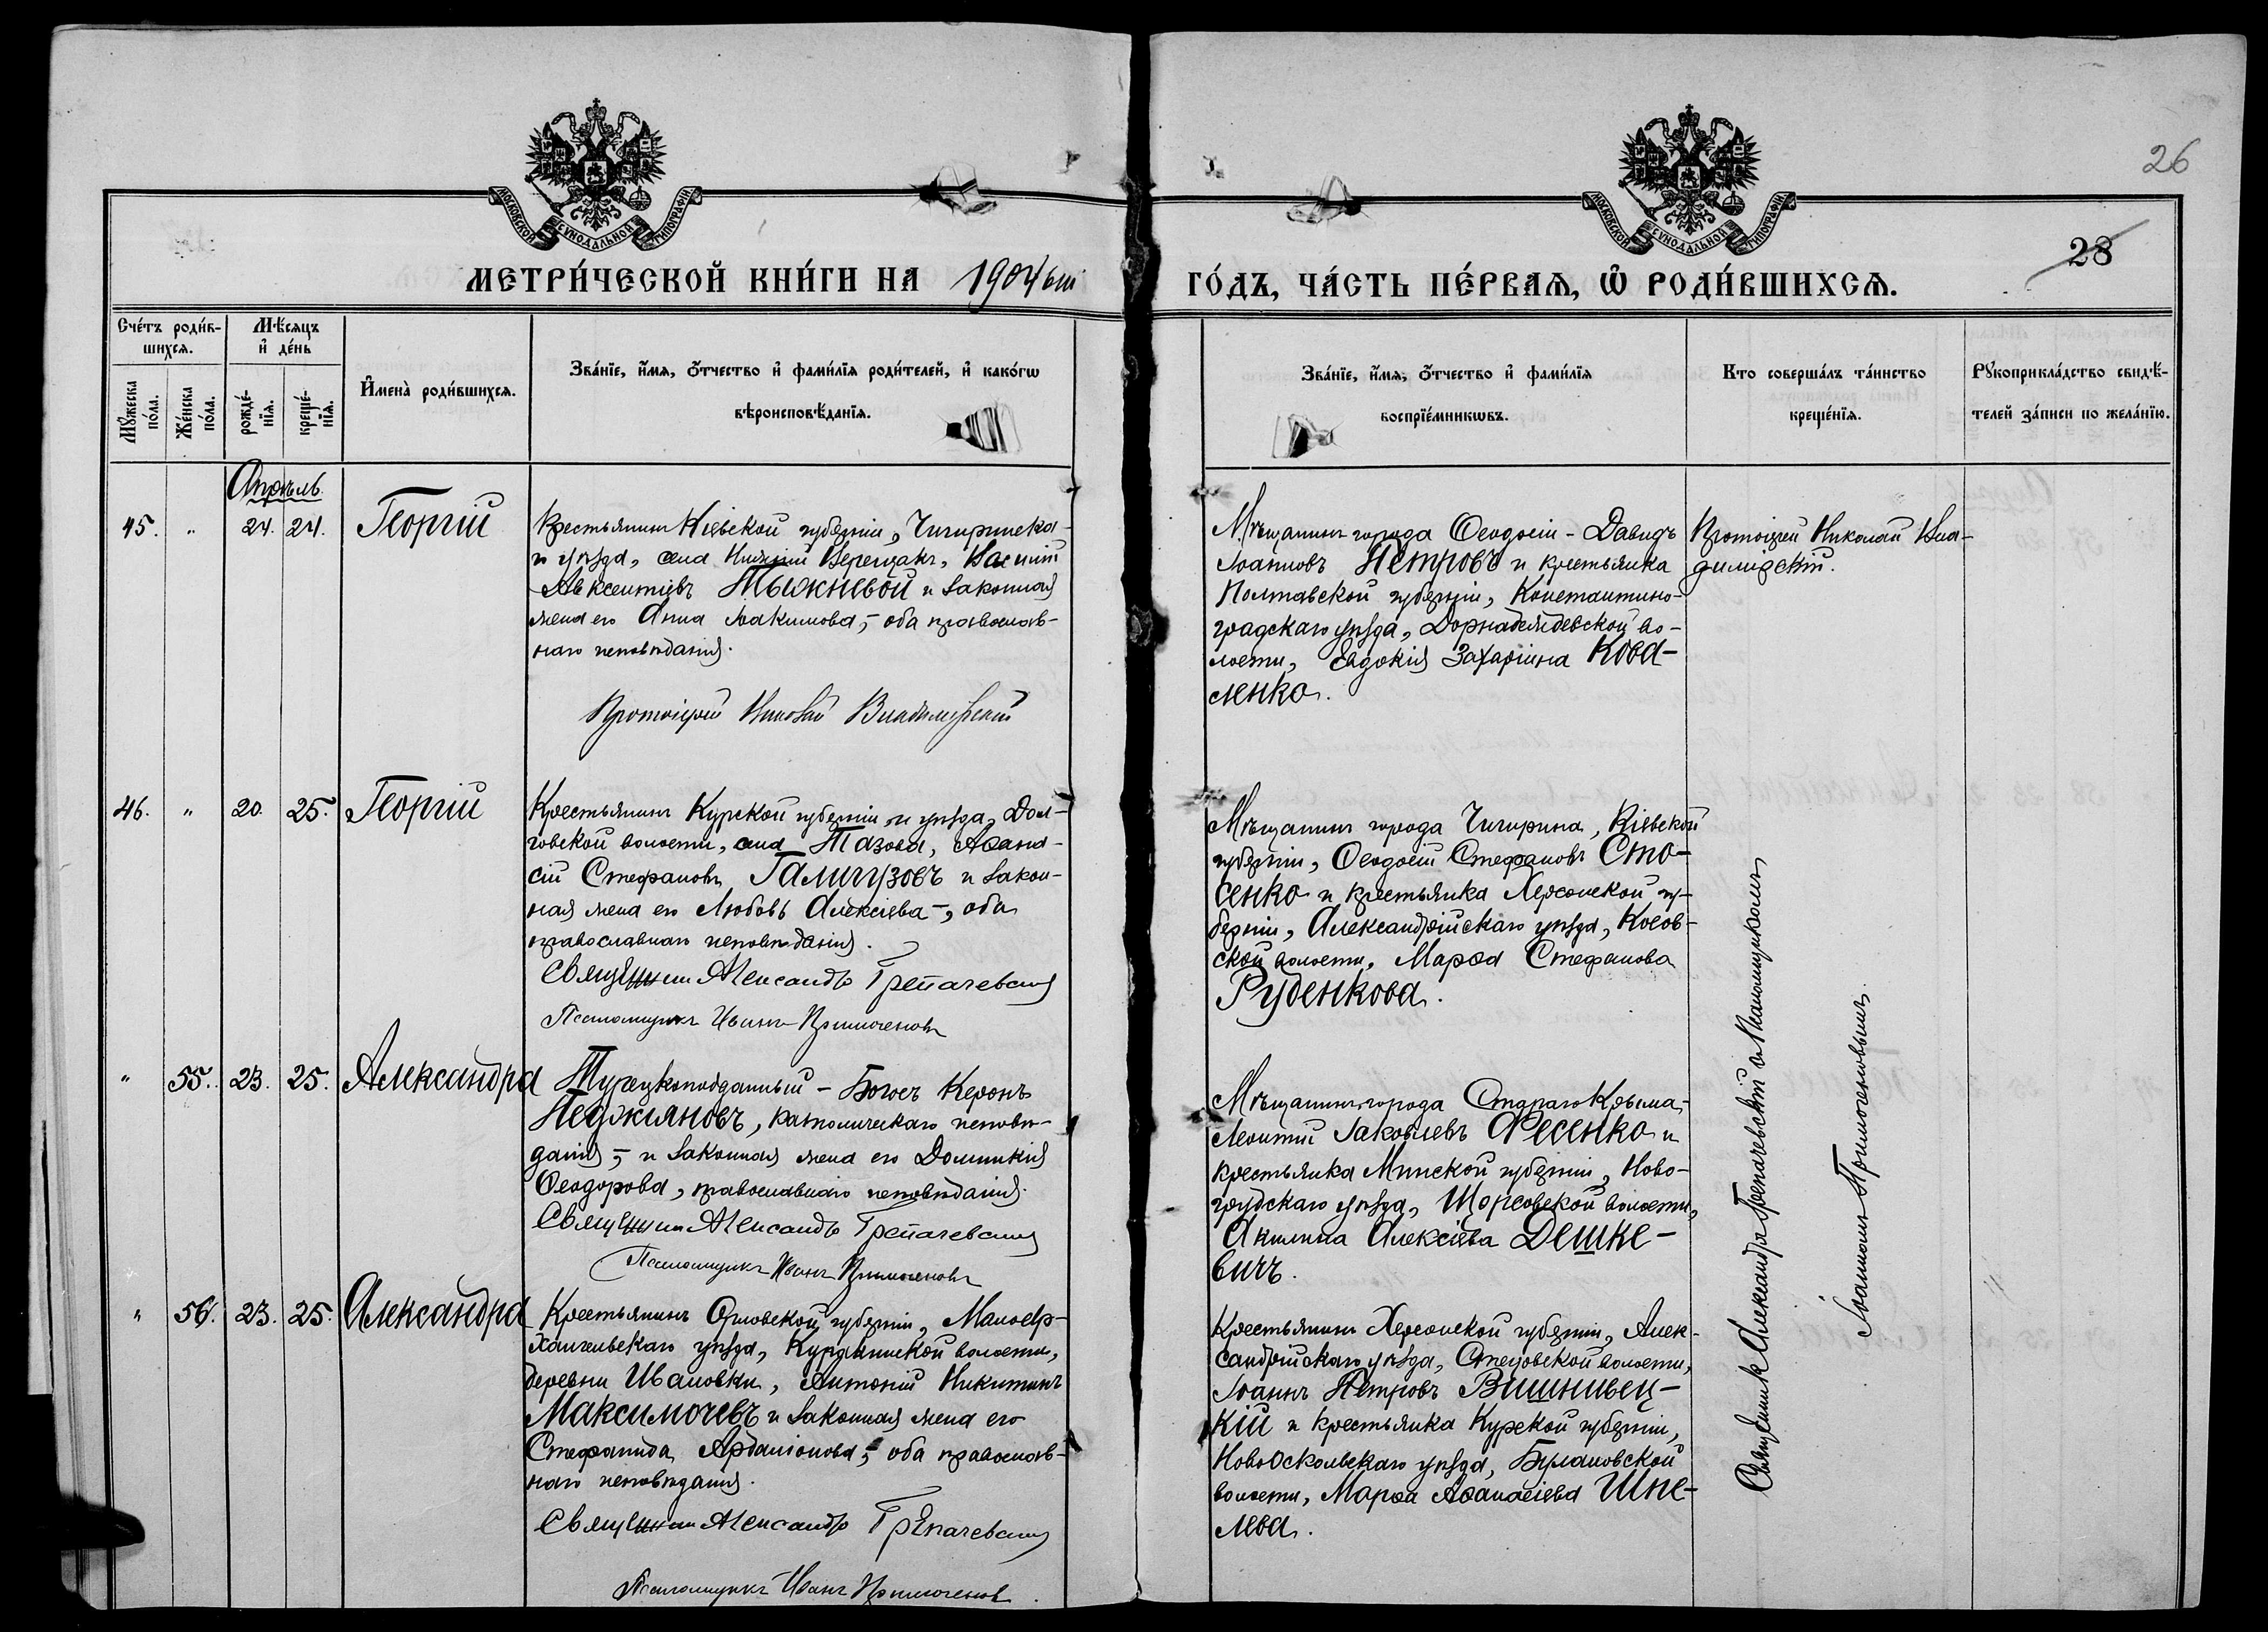 26
28
МОСКОВСКОЙ СѴНОДАЛЬНОЙ ТИПОГРАФІИ
МОСКОВСКОЙ СѴНОДАЛЬНОЙ ТИПОГРАФІИ
МЕТРИ́ЧЕСКОЙ КНИ́ГИ НА 1904 ый ГО́ДЪ, ЧА́СТЬ ПЕ́РВАѦ, Ѽ РОДИ́ВШИХСѦ.
Сче́тъ роди́в-
шихсѧ.
Мѣ́сяцъ
и҆ де́нь
Мꙋ́жеска
по́ла.
Же́нска
по́ла.
рожде́-
нїѧ.
креще́-
нїѧ.
И҆мена̀ роди́вшихсѧ.
Зва́нїе, и҆́мѧ, ѻ҆́тчество и҆ фами́лїѧ роди́телей, и҆ како́гѡ
вѣроисповѣ́данїѧ.
Зва́нїе, и҆́мѧ, ѻ҆́тчество и҆ фами́лїѧ
воспрїе́мникѡвъ.
Кто соверша́лъ та́инство
креще́нїѧ.
Рꙋкоприкла́дство свидѣ́-
телей за́писи по жела́нїю.
Апрѣль.
45. " 24. 24. Георгій
Крестьянинъ Кіевской губерніи, Чигиринска-
го уѣзда, села Нижній Верещакъ, Василій
Авксентіевъ Тыжневой и законная
жена его Анна Іоакимова, - оба православ-
наго исповѣданія.
Протоіерей Николай Владимірскій
Мѣщанинъ города Ѳеодосіи - Давидъ
Іоанновъ Петровъ и крестьянка
Полтавской губерніи, Константино-
градскаго уѣзда, во-
лости, Евдокія Захаріина Кова-
ленко.
Протоіерей Николай Вла-
димірскій.
46. " 20. 25. Георгій
Крестьянинъ Курской губерніи и уѣзда, Дол-
говской волости, села Тазова, Аѳана-
сій Стефановъ Галигузовъ и закон-
ная жена его Любовь Алексіева -, оба
православнаго исповѣданія.
Священникъ Александръ Грепачевскій
Псаломщикъ Иванъ Примоченовъ
Мѣщанинъ города Чигирина, Кіевской
губерніи, Ѳеодосій Стефановъ Сто-
сенко и крестьянка Херсонской гу-
берніи, Александрійскаго уѣзда, Косов-
ской волости, Марѳа Стефанова
Руденкова.
" 55. 23. 25. Александра
Турецкоподданный - Богосъ Керонъ
Педжіяновъ, католическаго исповѣ-
данія, - и законная жена его Домникія
Ѳеодорова, православнаго исповѣданія.
Священникъ Александръ Грепачевскій
Псаломщикъ Иванъ Примоченовъ
Мѣщанинъ города Стараго Крыма,
Леонтій Іаковлевъ Ѳесенко и
крестьянка Минской губерніи, Ново-
грудскаго уѣзда, Щорсовской волости,
Акилина Алексіева Дешке-
вичъ.
" 56. 23. 25. Александра
Крестьянинъ Орловской губерніи, Малоар-
хангельскаго уѣзда, волости,
деревни Ивановки, Антоній Никитинъ
Максимочевъ и законная жена его
Стефанида Ардаліонова, - оба православ-
наго исповѣданія.
Священникъ Александръ Грепачевскій
Псаломщикъ Иванъ Примоченовъ
Крестьянинъ Херсонской губерніи, Алек-
сандрійскаго уѣзда, Стецовской волости,
Іоаннъ Петровъ Вишнивец-
кій и крестьянка Курской губерніи,
Новооскольскаго уѣзда, Булановской
волости, Марѳа Аѳанасіева Шпе-
лева.
Священникъ Александръ Грепачевскій съ Псаломщикомъ
Іоанномъ Примоченовымъ.